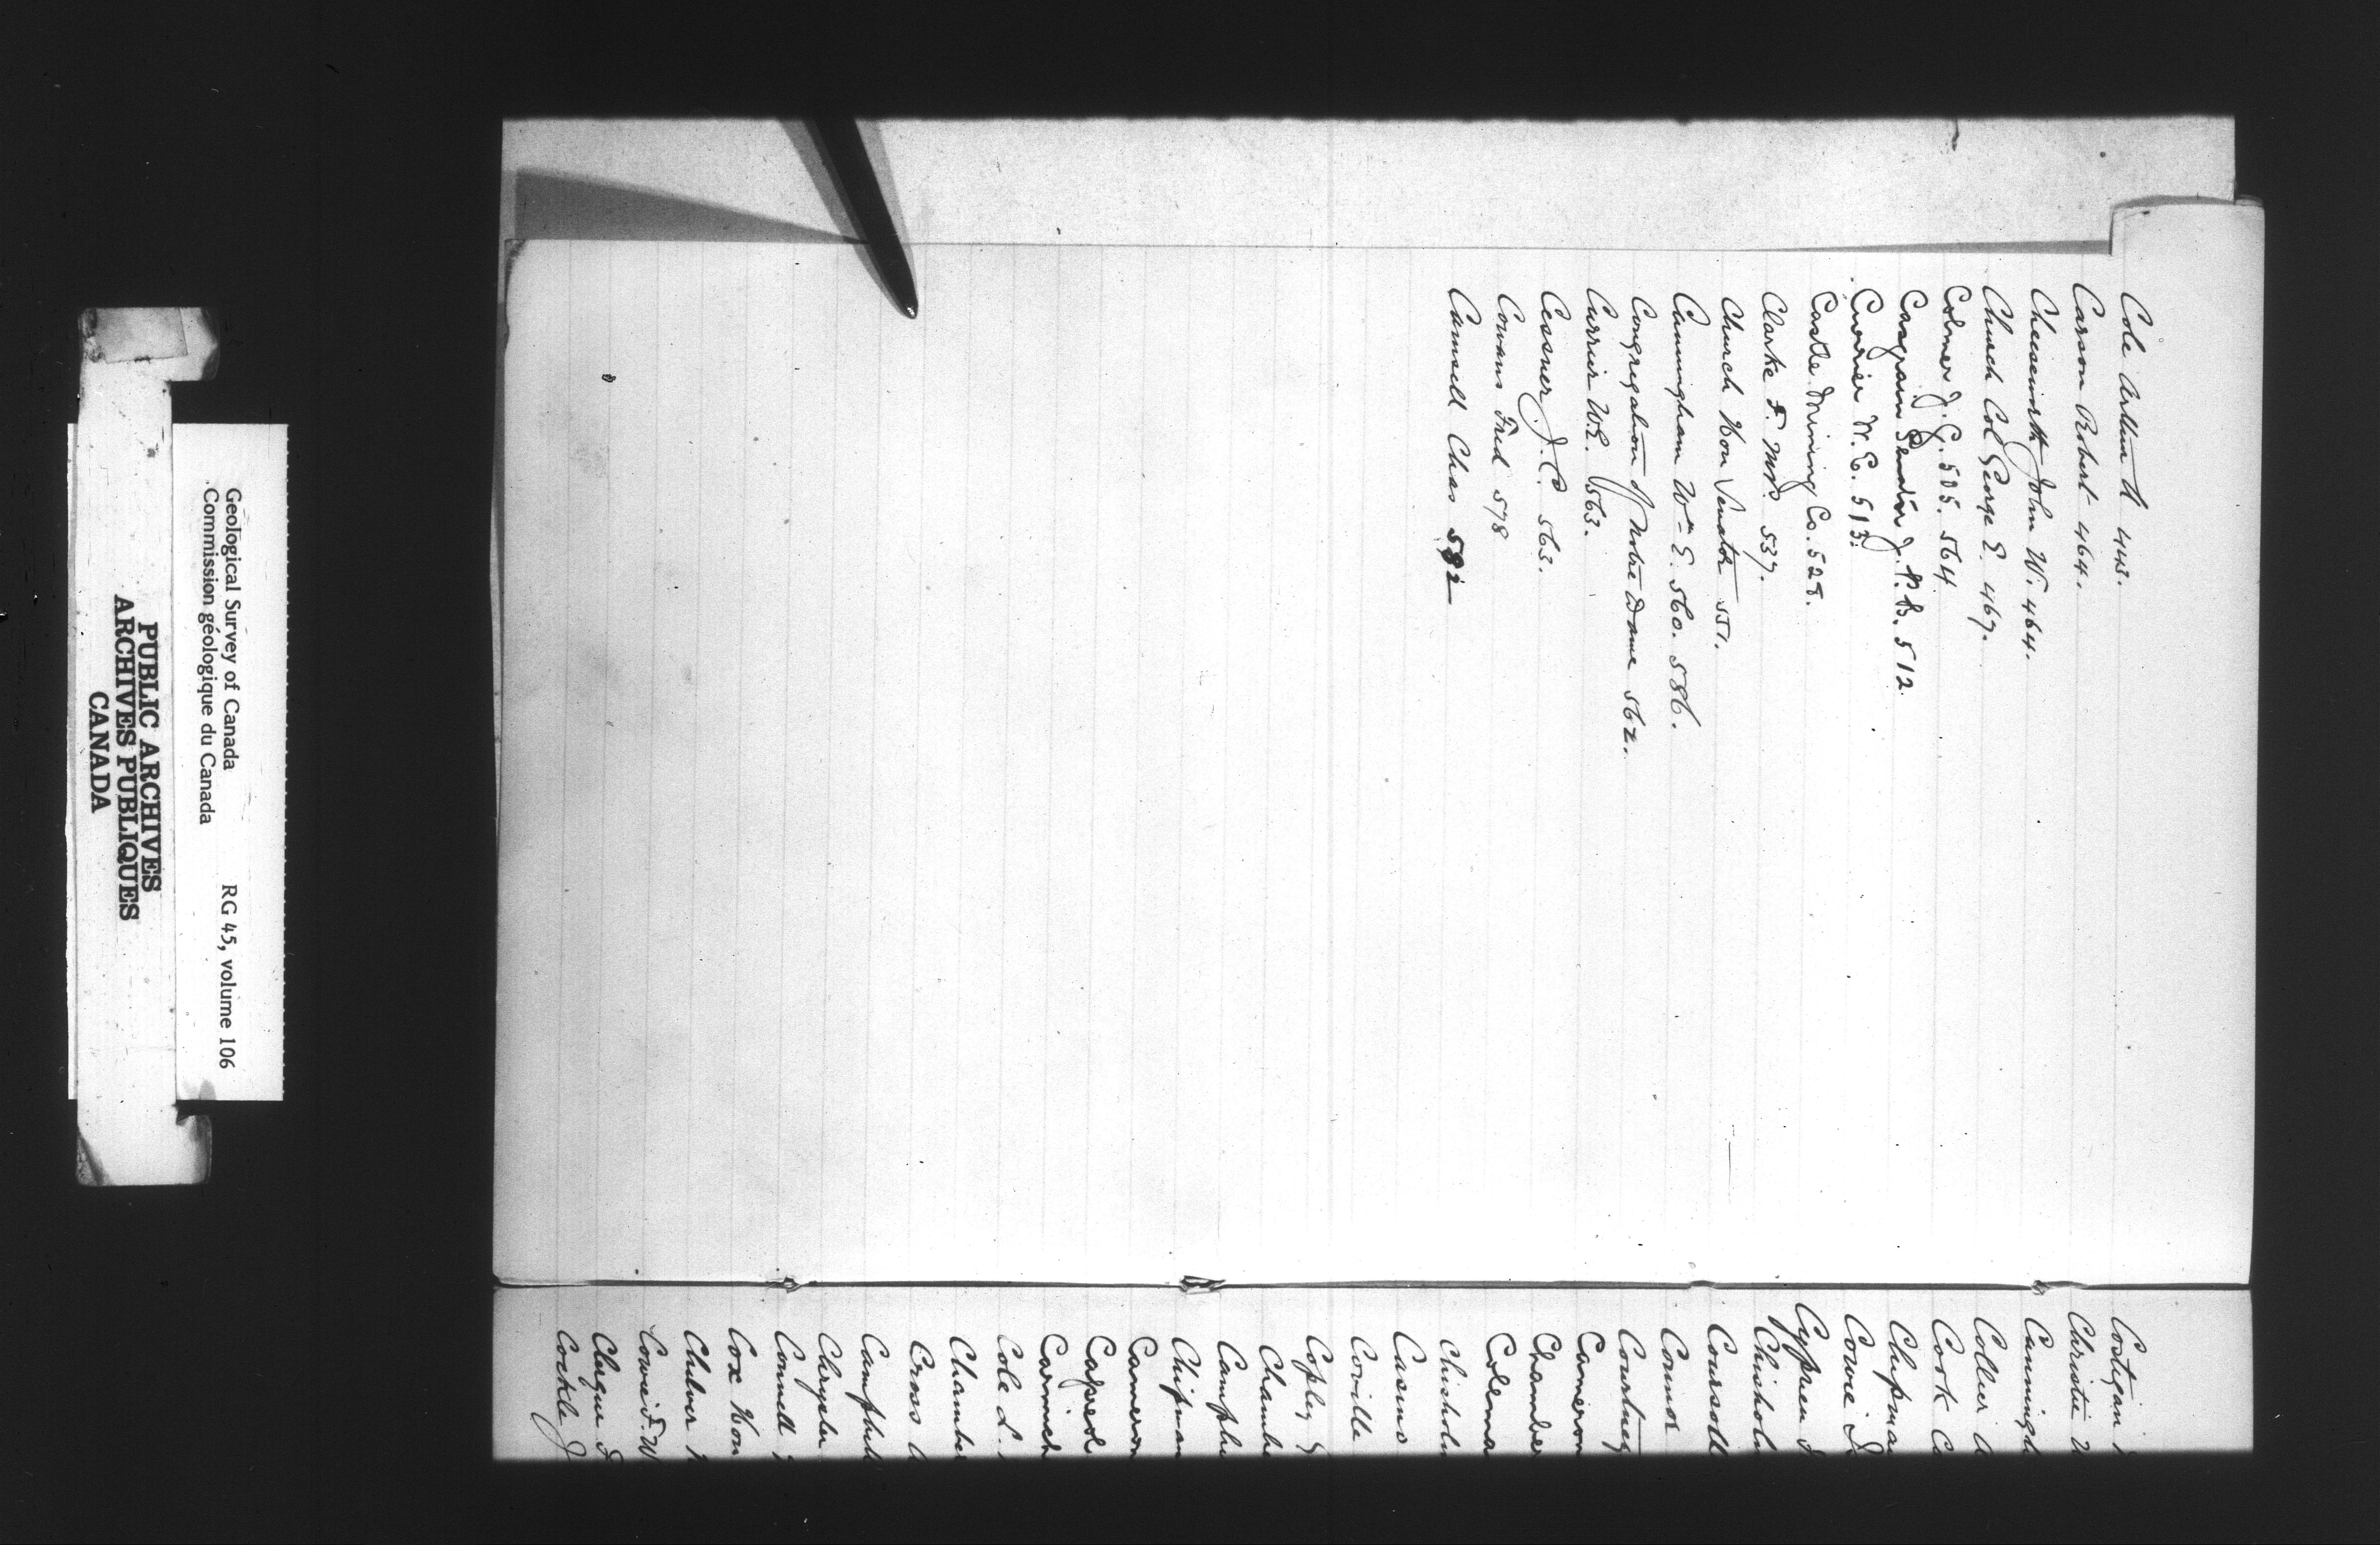 Cole Arthur A 443.
Carson Robert 464.
Cheesewoth John W. 464.
Church Col George E. 467.
Colmer J. G. 505. 564
Casgrain Senator J. P. B. 512.
Currier N. E. 513.
Castle Mining Co. 528.
Clarke F. 537.
Church Hon Senator 551.
Cunningham Wm E. 560. 586.
Congregation of Notre Dame 562.
Currier W.E. 563.
Cessner J. C. 563.
Cowans Fred 578
Camsell Chas 582
Costigan
Christie
Cunningh
Collier A
Cook C
Chipma
Cowie J
Cyprien J
Chishol
Coursoll
Connor
Courtney
Cameron
Chamber
Colema
Chisholm
Cusens
Coville
Copley G
Chambe
Campbe
Chipman
Cameron
Capreol
Carmich
Cole L.
Chambe
Cross
Campbell
Chrysler
Connell
Cox Hon
Chulver
Cowie F. W
Clugue F
Cockle J
Geological Survey of Canada
Commission géologique du Canada
RG 45, volume 106
PUBLIC ARCHIVES
ARCHIVES PUBLIQUES
CANADA